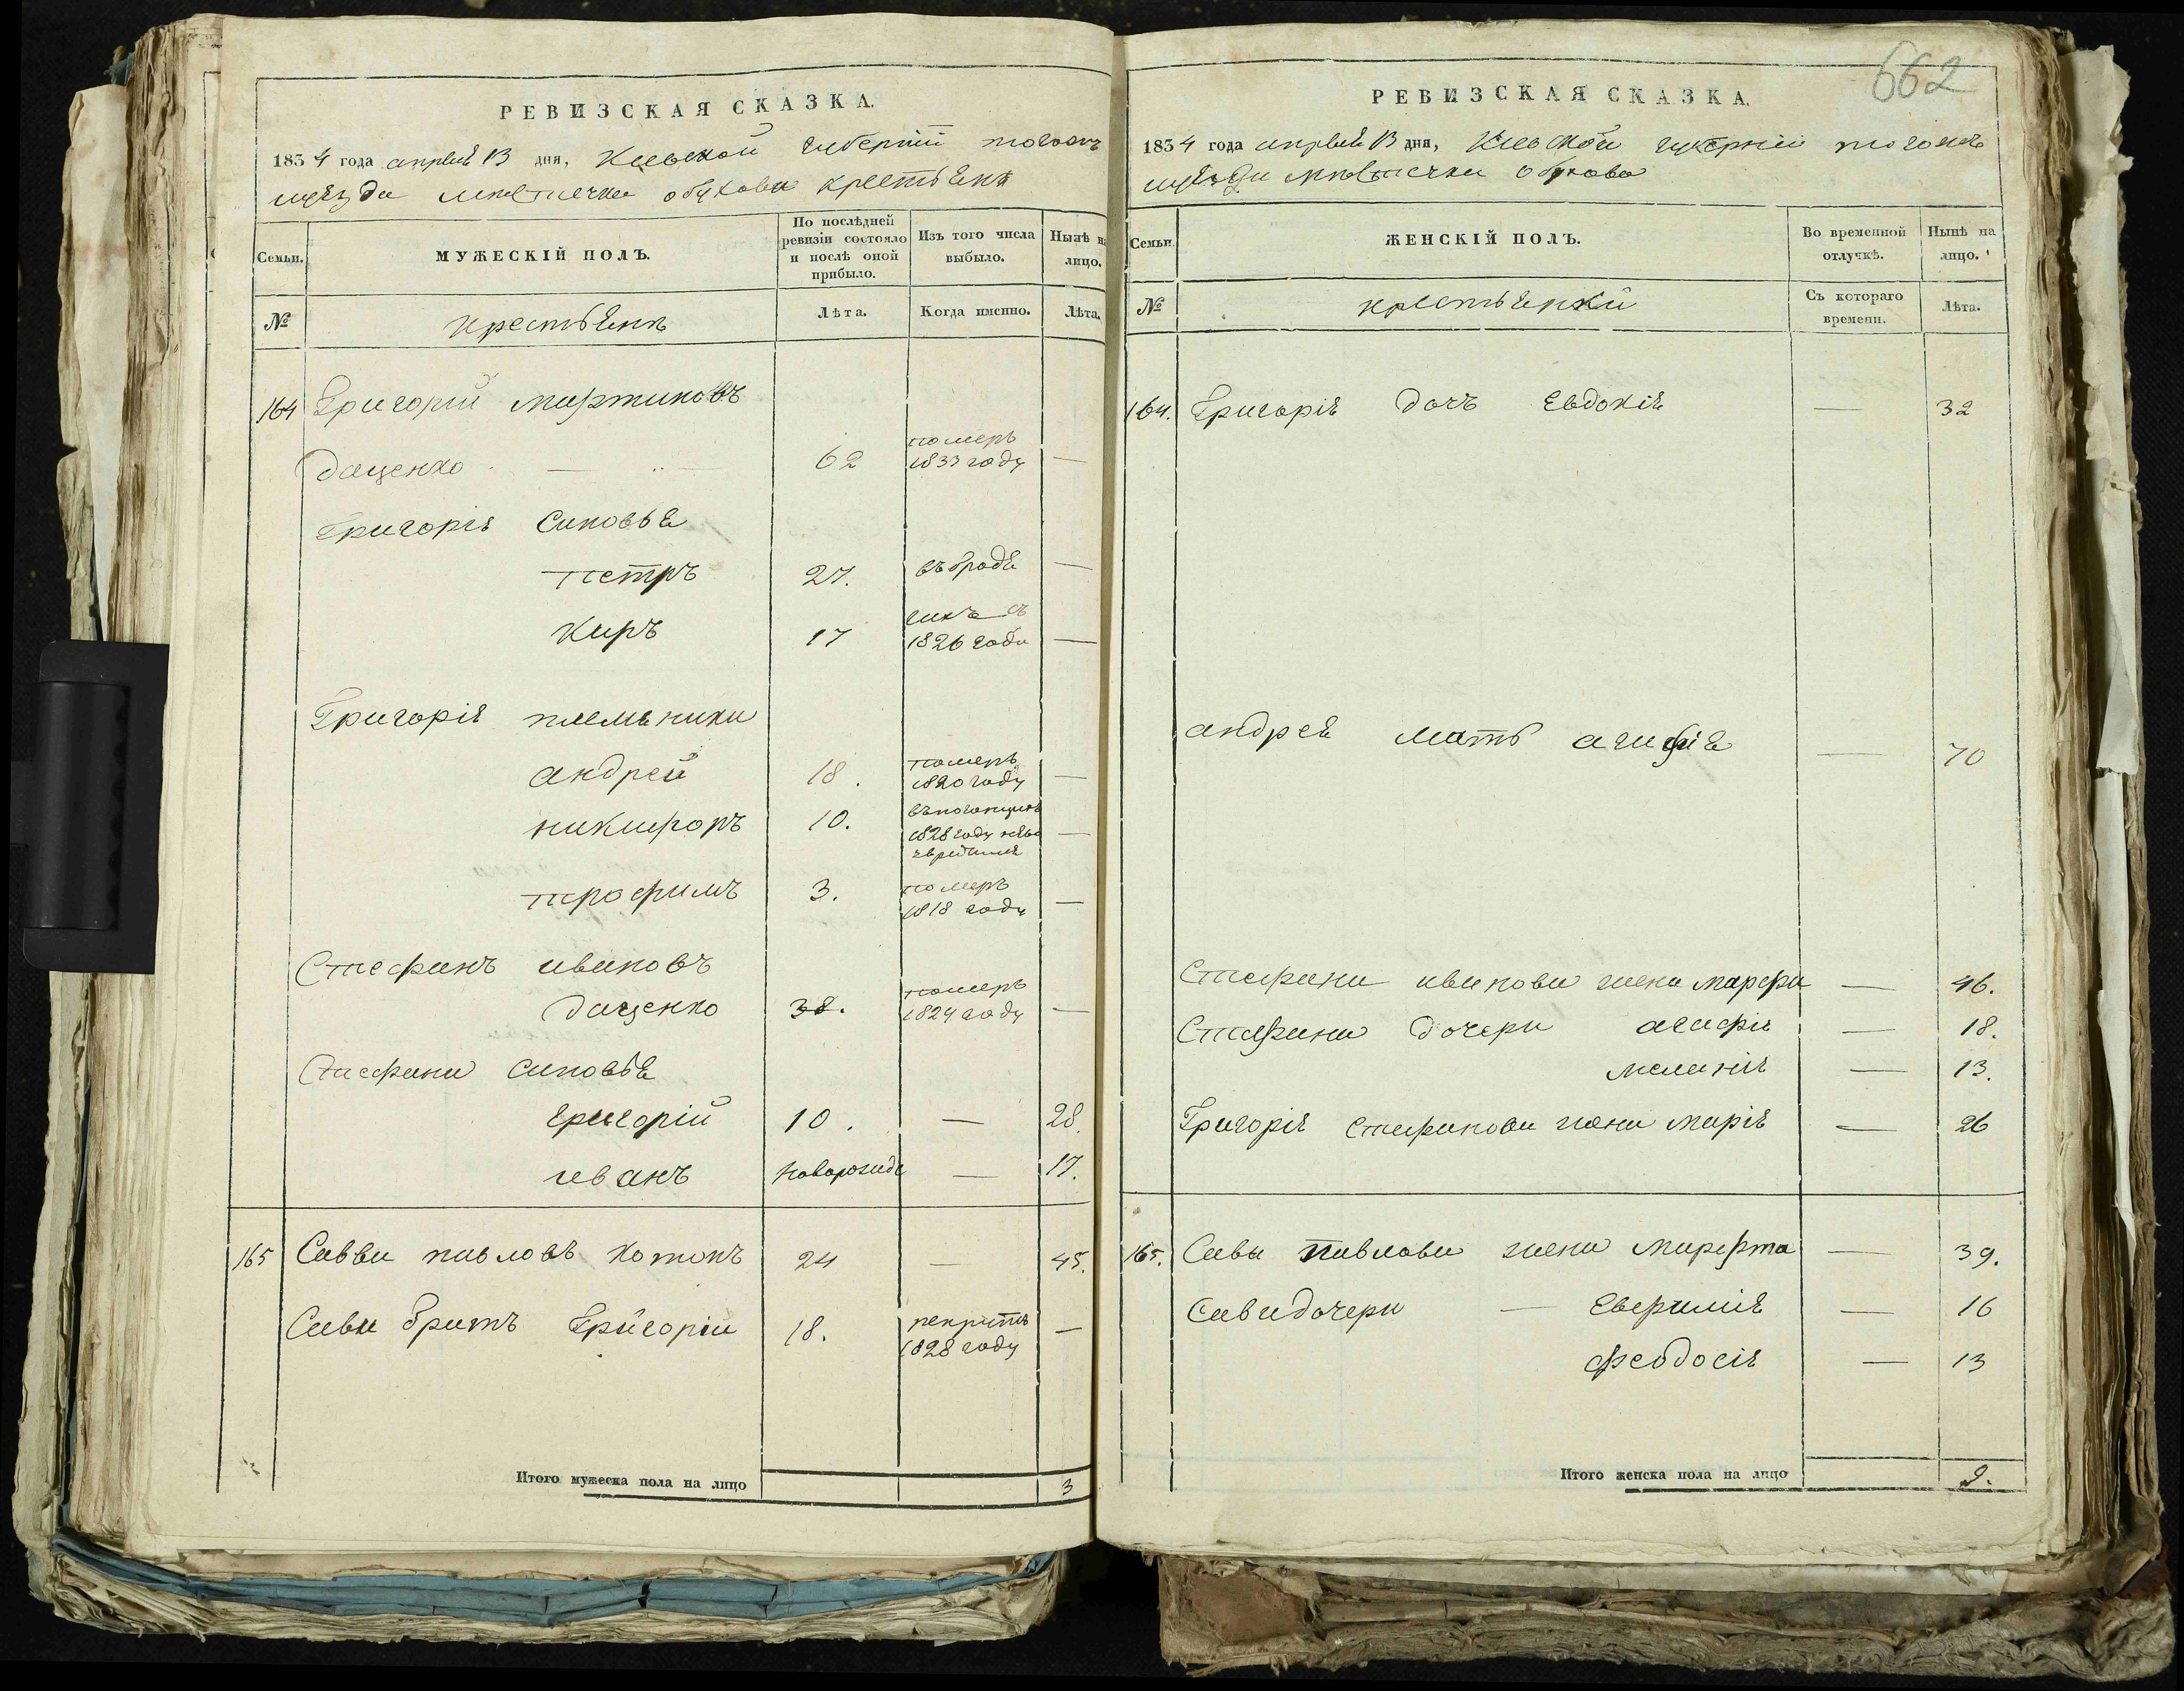 РЕВИЗСКАЯ СКАЗКА.
1834 года апреля 13 дня, Киевской губернiи тогожъ
уѣзда местечка обухова крестьянъ
Семьи.
МУЖЕСКIЙ ПОЛЪ.
По послѣдней ревизiи состояло и послѣ оной прибыло.
Изъ того числа выбыло.
Нынѣ на лицо.
№
крестьянъ
Лѣта.
Когда именно.
Лѣта.
164 Григорiй мартиновъ
Даценко — 62 померъ 1833 году —
Григорiя синовья
петръ 27. въ бродя —
киръ 17 гахъ съ 1826 года —
Григорiя племяники
андрей 18. померъ 1820 году —
никифоръ 10. 1828 году —
трофимъ 3. померъ 1818 году —
Стефанъ ивановъ
Даценко 38. померъ 1824 году —
Стефана синовья
григорiй 10. — 28.
иванъ новорожде — 17.
165 Савва павловъ котокъ 24 — 45.
Савы братъ Григорiй 18. рекрутъ 1828 году —
Итого мужеска пола на лицо 3
662
РЕВИЗСКАЯ СКАЗКА.
1834 года апреля 13 дня, Киевской губернiи тогожъ
уѣзда местечка обухова
Семьи.
ЖЕНСКIЙ ПОЛЪ.
Во временной отлучкѣ.
Нынѣ на лицо.
№
крестьянки
Съ котораго времени.
Лѣта.
164. Григорiя дочъ Евдокiя — 32
андрея мать агафiя — 70
Стефана иванова жена марфа — 46.
Стефана дочери агафiя — 18.
меланiя — 13.
Григорiя стефанова жена марiя — 26
165. Савы павлова жена марфта — 39.
Савы дочери — Евфимiя — 16
феодосiя — 13
Итого женска пола на лицо 9.